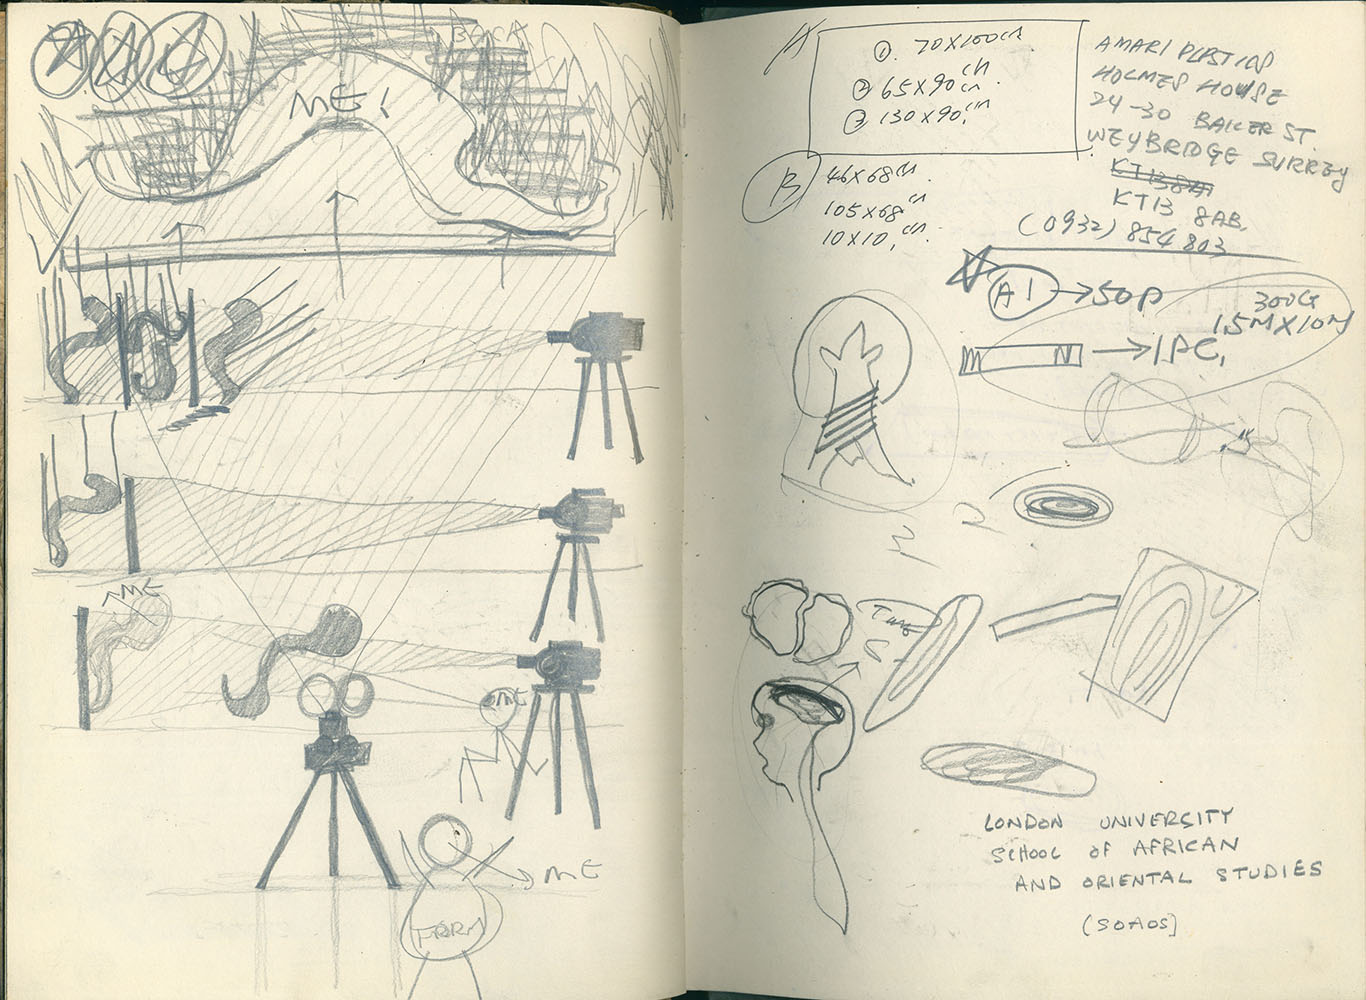 BACK
ME!
ME
ME
ME
FORM
A
① 70X100cm
② 65X90cm
③ 130X90cm
B
46X68cm
105X68cm
10X10cm
AMARI PLASTICS
HOLMES HOUSE
24-30 BAKER ST.
WEYBRIDGE SURREY
KT13 8AB,
(0932) 854 803
A1 → 50P
300G
1.5M X 10M
→ 1PC,
LONDON UNIVERSITY
SCHOOL OF AFRICAN
AND ORIENTAL STUDIES
(SOAOS)